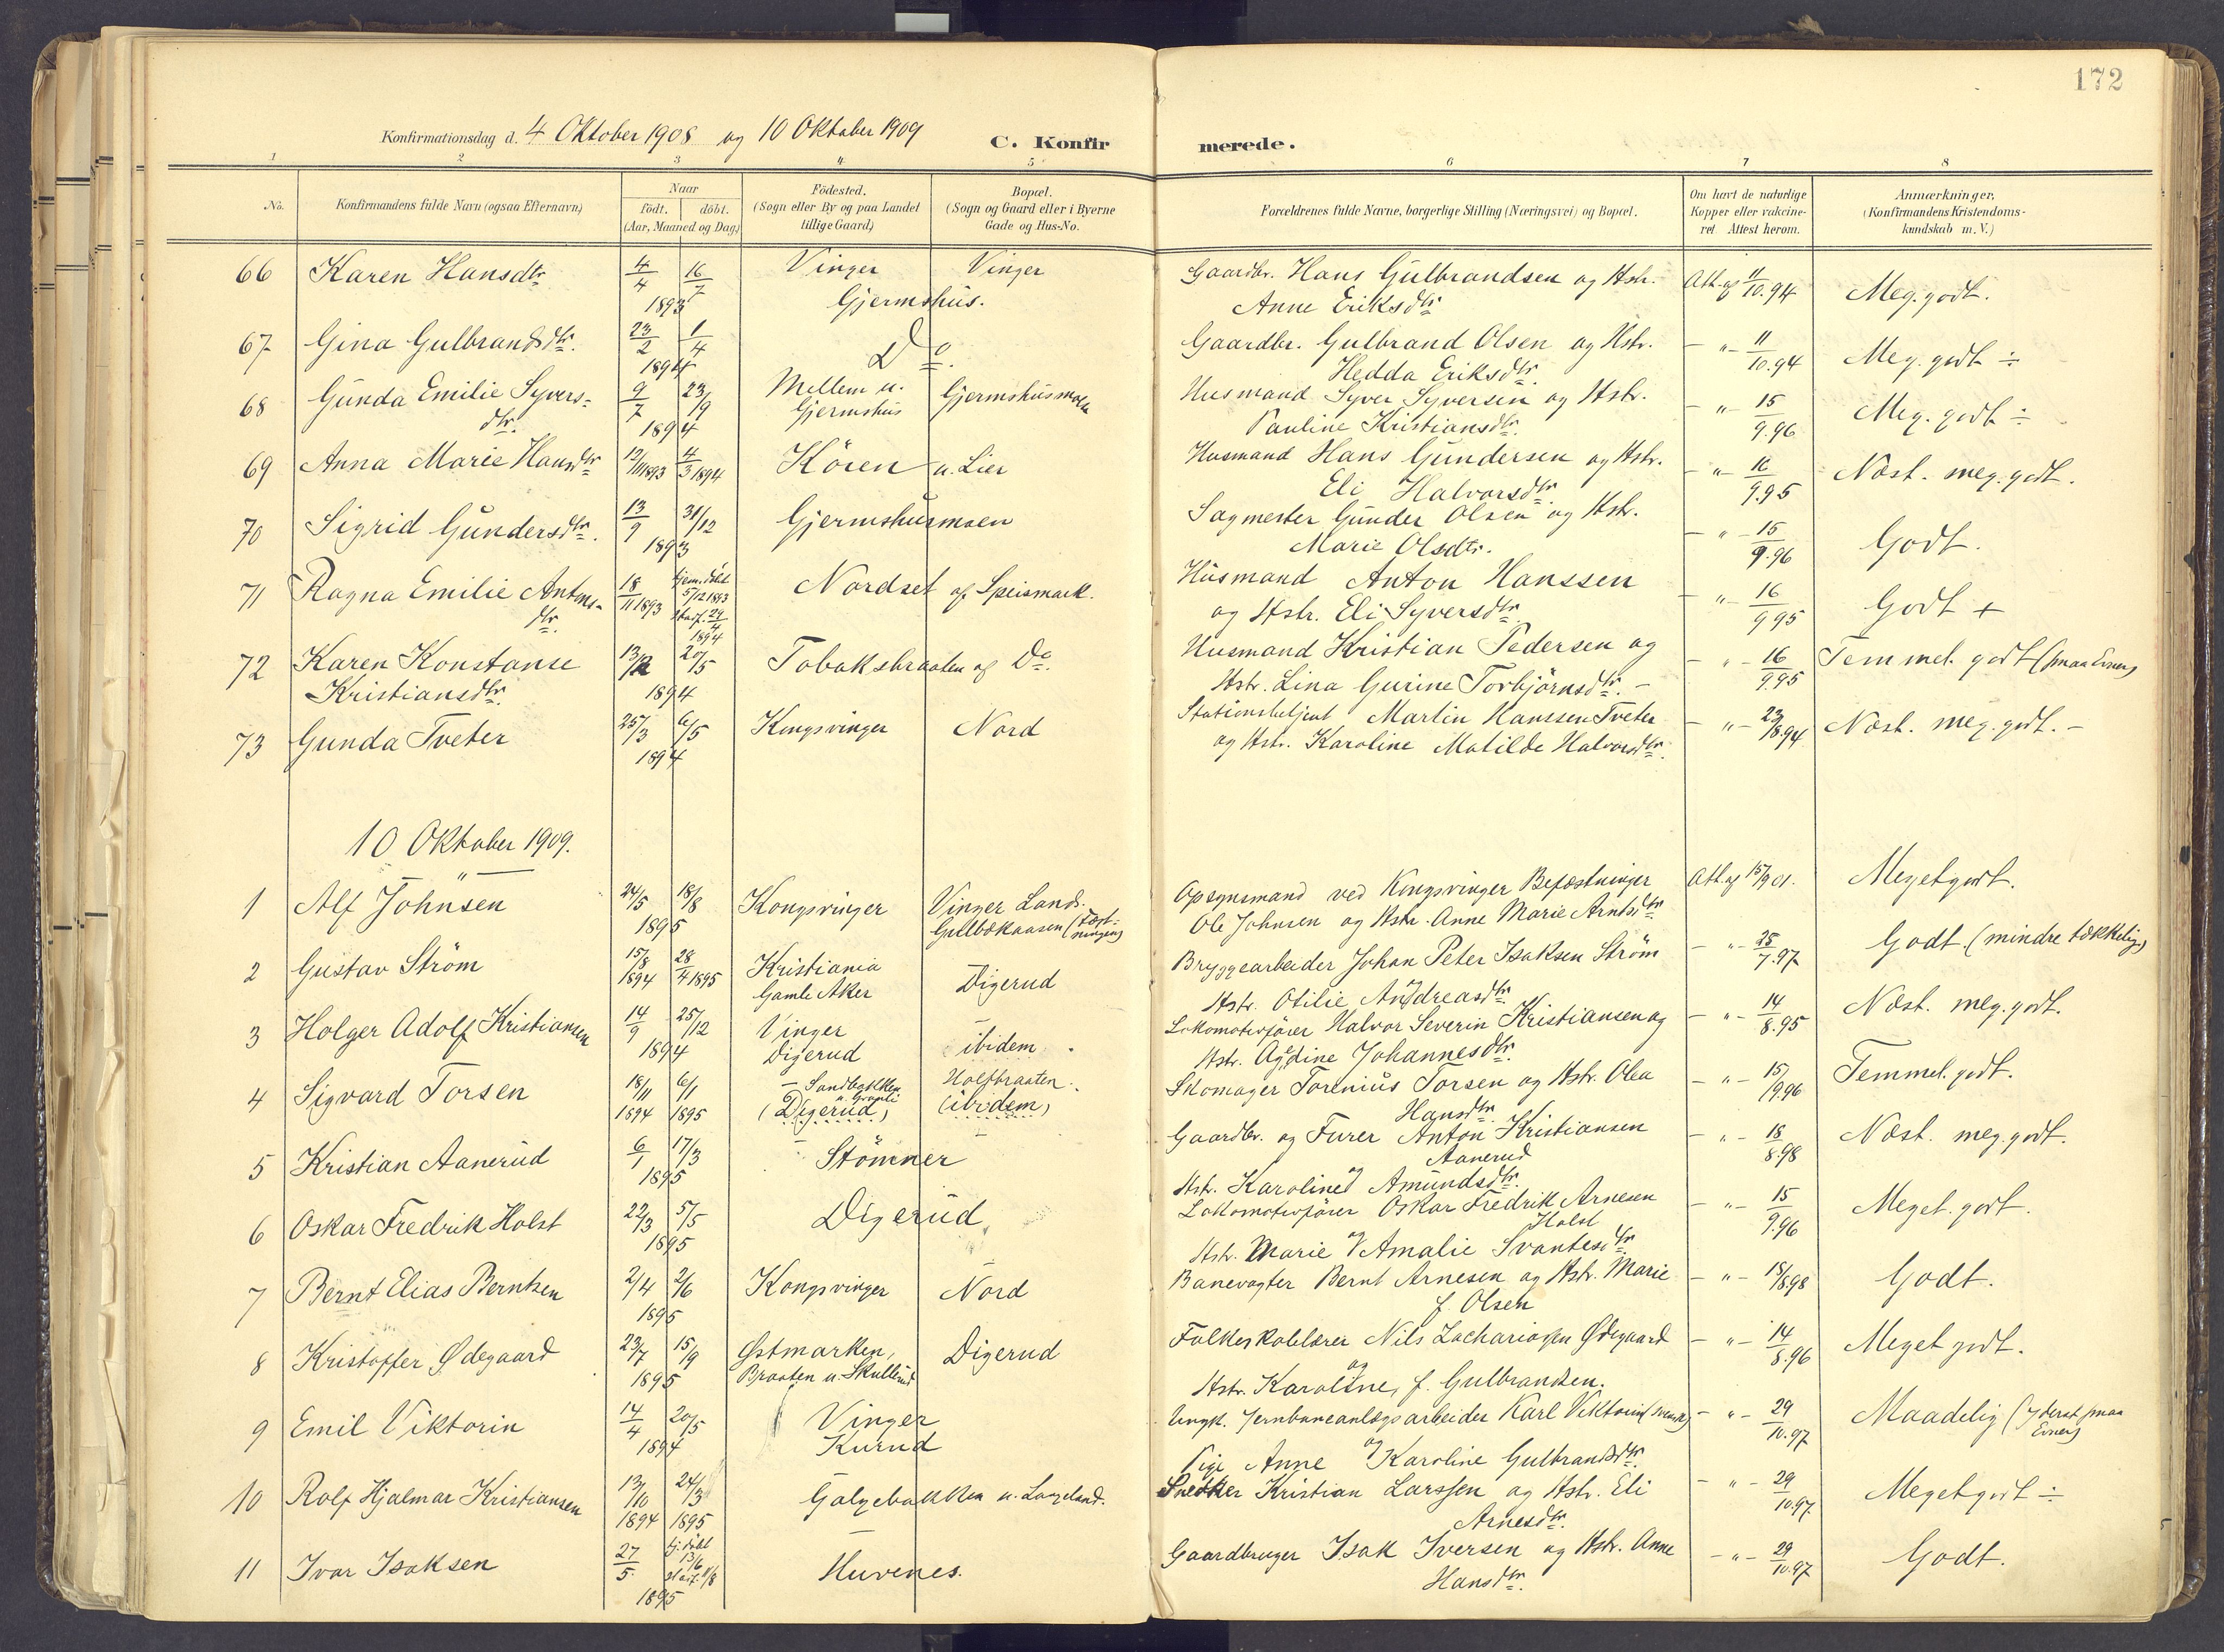 172
Konfirmationsdag d. 4 Oktober 1908 og 10 Oktober 1909
C. Konfirmerede.
1 2 3 4 5 6 7 8
No.
Konfirmandens fulde Navn (ogsaa Efternavn)
Naar
født. døbt.
(Aar, Maaned og Dag)
Födested.
(Sogn eller By og paa Landet
tillige Gaard)
Bopæl.
(Sogn og Gaard eller i Byerne
Gade og Hus-No.
Forældrenes fulde Navne, borgerlige Stilling (Næringsvei) og Bopæl.
Om havt de naturlige
Kopper eller vakcine-
ret. Attest herom.
Anmærkninger,
(Konfirmandens Kristendoms-
kundskab m. V.)
66 Karen Hansdtr 4/4 16/7 1893 Vinger Vinger Gjermshus. Gaardbr. Hans Gulbrandsen og Hstr. Att. af 11/10.94 Meg. godt.
Anne Eriksdtr
67 Gina Gulbrandsdtr. 23/2 1/4 1894 Do. Gaardbr. Gulbrand Olsen og Hstr. - " - 11/10.94 Meg. godt ÷
Hedda Eriksdtr.
68 Gunda Emilie Syvers= 9/7 23/9 1894 Mellem u. Gjermshus Gjermshusmoen Husmand Syver Syversen og Hstr. - " - 15/9.96 Meg. godt ÷
dtr. Pauline Kristiansdtr.
69 Anna Marie Hansdtr 12/11 1893 4/3 1894 Kören u. Lier Husmand Hans Gundersen og Hstr. - " - 16/9.95 Næst. meg. godt.
Eli Halvorsdtr.
70 Sigrid Gundersdtr. 13/9 31/12 1893 Gjermshusmoen Sagmester Gunder Olsen og Hstr. - " - 15/9.96 Godt.
Marie Olsdtr.
71 Ragna Emilie Antons- 18/11 1893 hjem. döbt 5/12 1893 stadf. 24/4 1894 Nordset af Speismark. Husmand Anton Hanssen - " - 16/9 95 Godt +
dtr. og Hstr. Eli Syversdtr.
72 Karen Konstanse 13/2 20/5 1894 Tobaksbraaten af Do. Husmand Kristian Pedersen og - " - 16/9.95 Temmel. godt (smaa Evner)
Kristiansdtr. Hstr. Lina Gurine Torbjörnsdtr. -
73 Gunda Tveter 25/3 6/5 1894 Kongsvinger Nord Stationsbetjent Martin Hanssen Tveter - " - 23/8.94 Næst. meg. godt. -
og Hstr. Karoline Matilde Halvorsdtr.
10 Oktober 1909.
"
1 Alf Johnsen 24/5 18/8 1895 Kongsvinger Vinger Lands. Gulbækaasen (Fæst-ningen) Opsynsmand ved Kongsvinger Befæstninger Att. af 15/9 01. Meget godt.
Ole Johnsen og Hstr. Anne Marie Arntsdtr
2 Gustav Ström 15/8 1894 28/4 1895 Kristiania Gamle Aker Digerud Bryggearbeider Johan Peter Isaksen Ström - " - 25/7.97 Godt. (mindre tækkelig)
og Hstr. Otilie Andreasdtr
3 Holger Adolf Kristiansen 14/9 25/12 1894 Vinger Digerud - ibidem. Lokomotivförer Halvor Severin Kristiansen og - " - 14/8.95 Næst. meg. godt.
Hstr. Agedine Johannesdtr.
4 Sigvard Torsen 18/11 1894 6/1 1895 - Sandbakken (Digerud) Holtbraaten. (ibidem) Skomager Torenius Torsen og Hstr. Olea - " - 15/9.96 Temmel. godt.
Hansdtr.
5 Kristian Aanerud 6/1 17/3 1895 Stömner Gaardbr. og Furer Anton Kristiansen - " - 18/8.98 Næst. meg. godt.
Aanerud
og Hstr. Karoline Amundsdtr.
6 Oskar Fredrik Holst 22/3 5/5 1895 Digerud Lokomotivförer Oskar Fredrik Arnesen - " - 15/9.96 Meget. godt.
Holst
og Hstr. Marie Amalie Svantesdtr
7 Bernt Elias Berntsen 2/4 2/6 1895 Kongsvinger Nord Banevogter Bernt Arnesen og Hstr. Marie - " - 18/8.98 Godt.
f. Olsen
8 Kristoffer Ødegaard 23/7 15/9 1895 Østmarken, Braaten u. Skullerud Digerud Folkeskolelærer Nils Zachariassen Ødegaard - " - 14/8.96 Meget godt.
og Hstr. Karoline, f. Gulbrandsen.
9 Emil Viktorin 14/4 20/5 1894 Vinger Kurud Ungk. Jernbaneanlægsarbeider Karl Viktorin (svensk) - " - 29/10.97 Maadelig (yderst smaa Evner)
og Pige Anne Karoline Gulbrandsdtr.
10 Rolf Hjalmar Kristiansen 13/10 1894 24/3 1895 Galgebakken u. Langeland. Snedker Kristian Larssen og Hstr. Eli - " - 29/10.97 Meget godt ÷
Arnesdtr.
11 Ivar Isaksen 27/5 hj. döbt 13/6 stadf. 11/8 1895 Huvenes. Gaardbruger Isak Iversen og Hstr. Anne - " - 29/10.97 Godt.
Hansdtr.